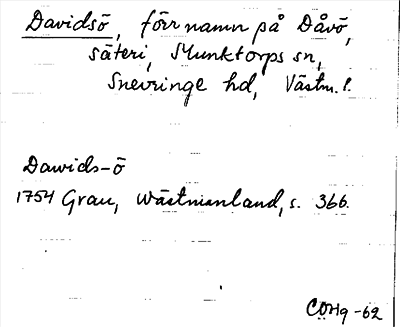 Davidsö, förr namn på Dåvö,
säteri, Munktorps sn,
Snevringe hd, Västm. l.
Dawids-ö
1754 Grau, Wästmanland, s. 366.
COHg -62